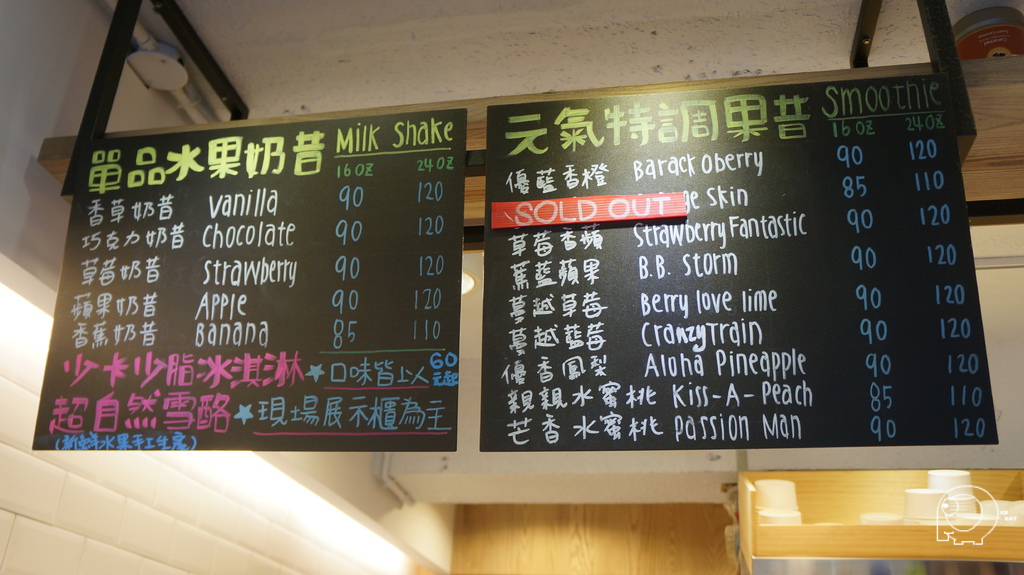 單品水果奶昔 Milk Shake
16 oz 24 oz
香草奶昔 Vanilla 90 120
巧克力奶昔 Chocolate 90 120
草莓奶昔 Strawberry 90 120
蘋果奶昔 Apple 90 120
香蕉奶昔 Banana 85 110
少卡少脂冰淇淋 ★口味皆以60元起
超自然雪酪 ★現場展示櫃為主
水果手工生產)
元氣特調果昔 Smoothie
16 oz 24 oz
優藍香橙 Barack oberry 90 120
SOLD OUT ge Skin 85 110
草莓香蘋 Strawberry Fantastic 90 120
蕉藍蘋果 B.B. Storm 90 120
蔓越草莓 Berry love lime 90 120
蔓越藍莓 Cranzy Train 90 120
優香鳳梨 Aloha Pineapple 90 120
親親水蜜桃 Kiss-A-Peach 85 110
芒香水蜜桃 Passion Man 90 120